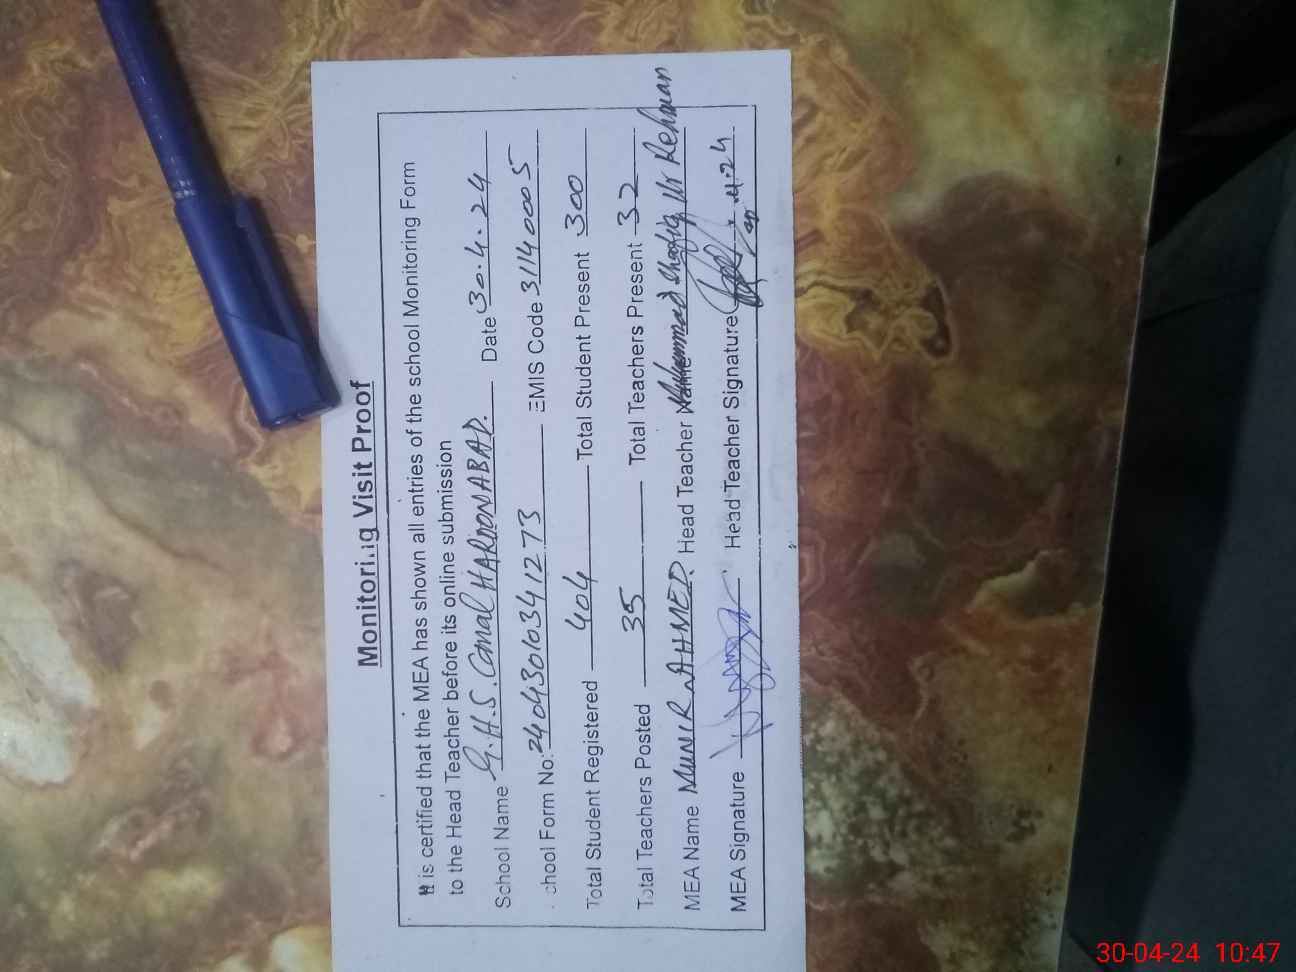 Monitoring Visit Proof
It is certified that the MEA has shown all entries of the school Monitoring Form
to the Head Teacher before its online submission
School Name G.H.S. Canal HAROONABAD. Date 30.4.24
chool Form No: 24043010341273 EMIS Code 31140005
Total Student Registered 404 Total Student Present 300
Total Teachers Posted 35 Total Teachers Present 32
MEA Name MUNIR AHMED. Head Teacher Name Muhammad Shafiq Ur Rehman
MEA Signature Head Teacher Signature
30-04-24 10:47